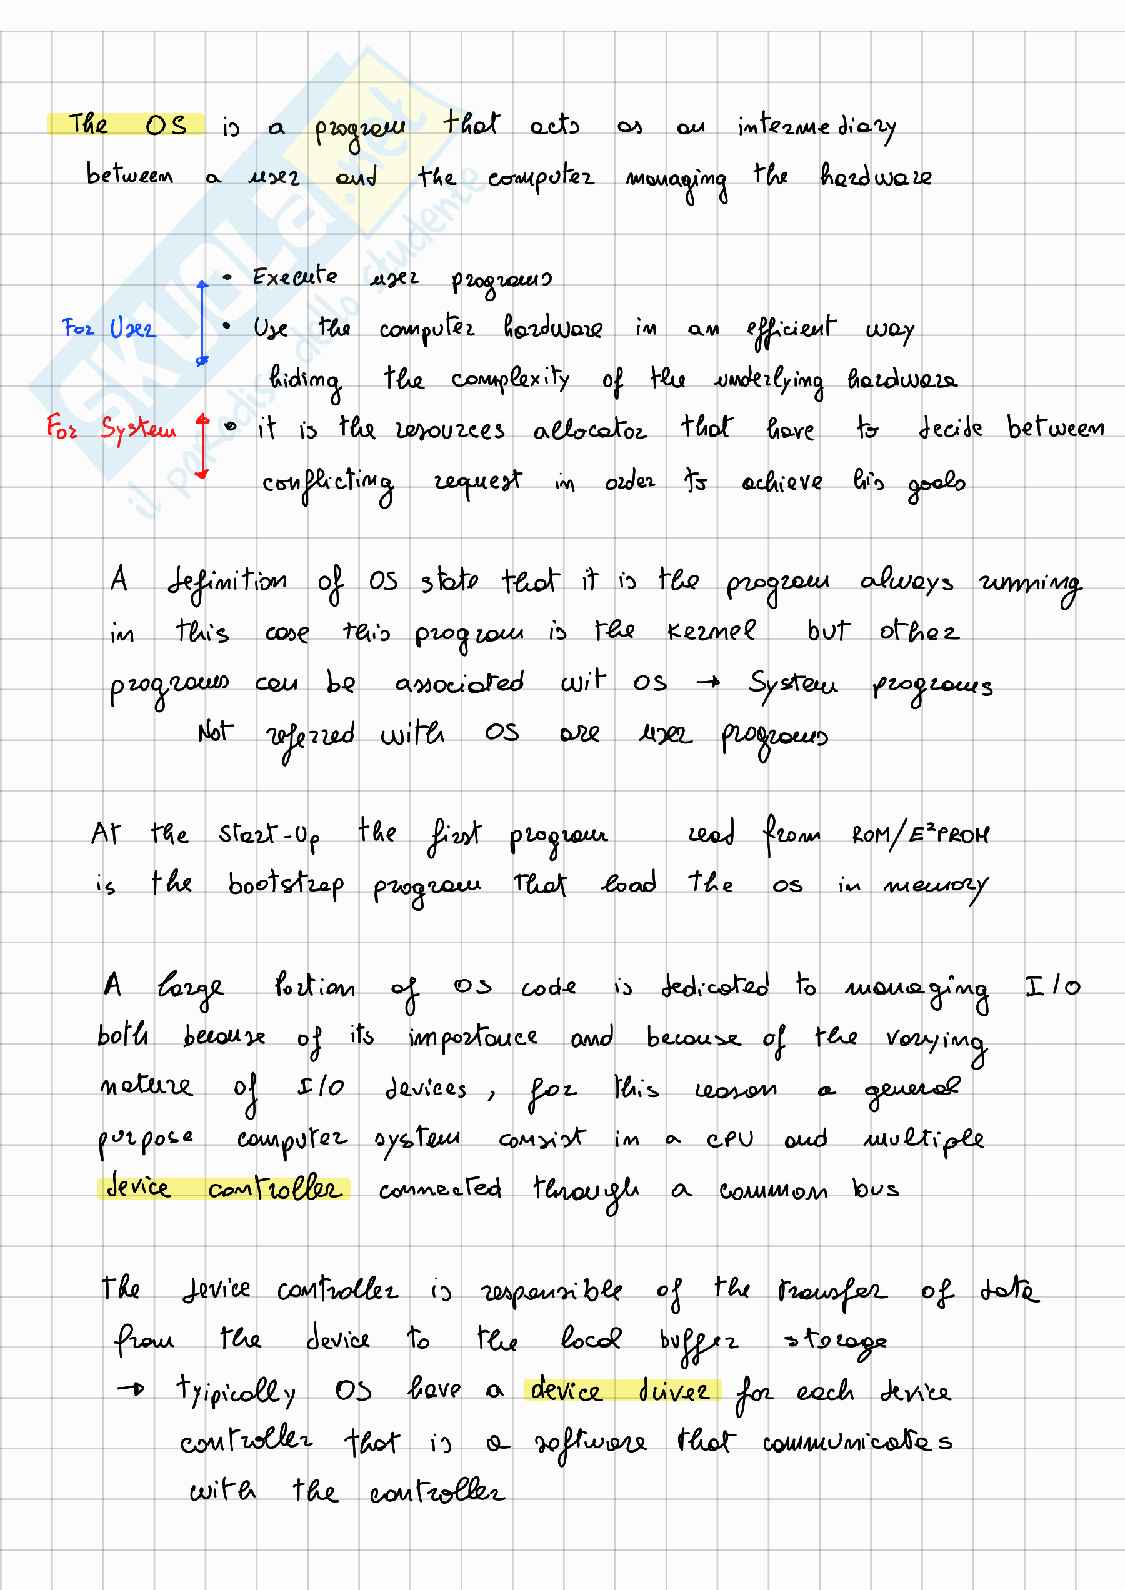 The OS is a program that acts as an intermediary
between a user and the computer managing the hardware
• Execute user programs
For User • Use the computer hardware in an efficient way
hiding the complexity of the underlying hardware
For System • it is the resources allocator that have to decide between
conflicting request in order to achieve his goals
A definition of OS state that it is the program always running
in this case this program is the kernel but other
programs can be associated wit OS → System programs
Not referred with OS are user programs
At the start-up the first program read from ROM/E²PROM
is the bootstrap program that load the OS in memory
A large portion of OS code is dedicated to managing I/O
both because of its importance and because of the varying
nature of I/O devices, for this reason a general
purpose computer system consist in a CPU and multiple
device controller connected through a common bus
The device controller is responsible of the transfer of data
from the device to the local buffer storage
→ tyipically OS have a device driver for each device
controller that is a software that communicates
with the controller
SKUOLA.net
il paradiso dello studente